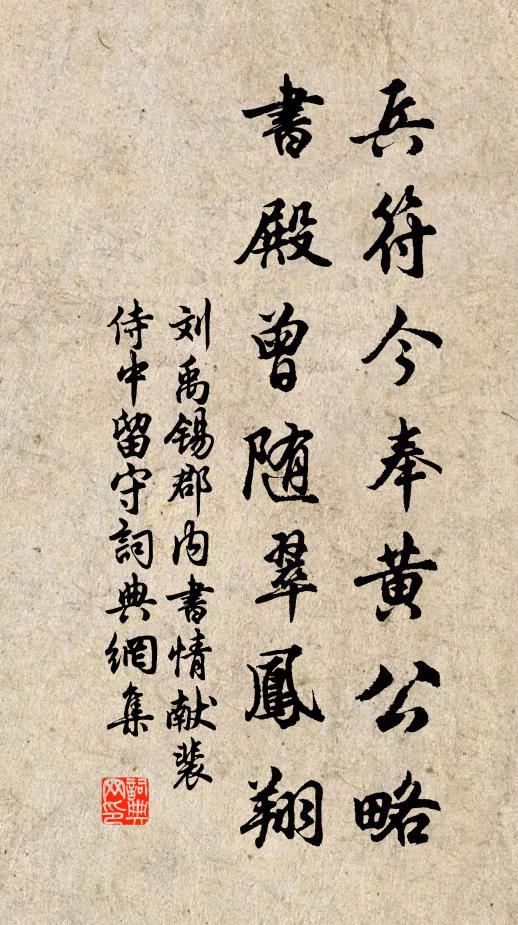 兵符今奉黄公略
書殿曾随翠鳳翔
刘禹锡郡内書情献裴
侍中留守詞典網集
詞典
网印